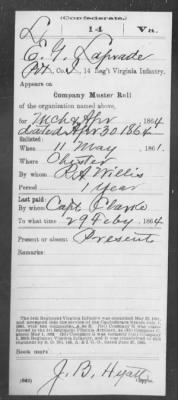 (Confederate.)
L 14 Va.
E. G. Laprade
Pvt, Co. 14 Reg't Virginia Infantry.
Appears on
Company Muster Roll
of the organization named above,
for Mch & Apr, 1864
dated Apr 30 1864
Enlisted:
When 11 May, 1861.
Where Chester
By whom R. A. Willis
Period 1 year
Last paid:
By whom Capt. Clarke
To what time 29 Feby, 1864
Present or absent Present
Remarks:
Book mark:
J. B. Hyatt
(642) Copyist.